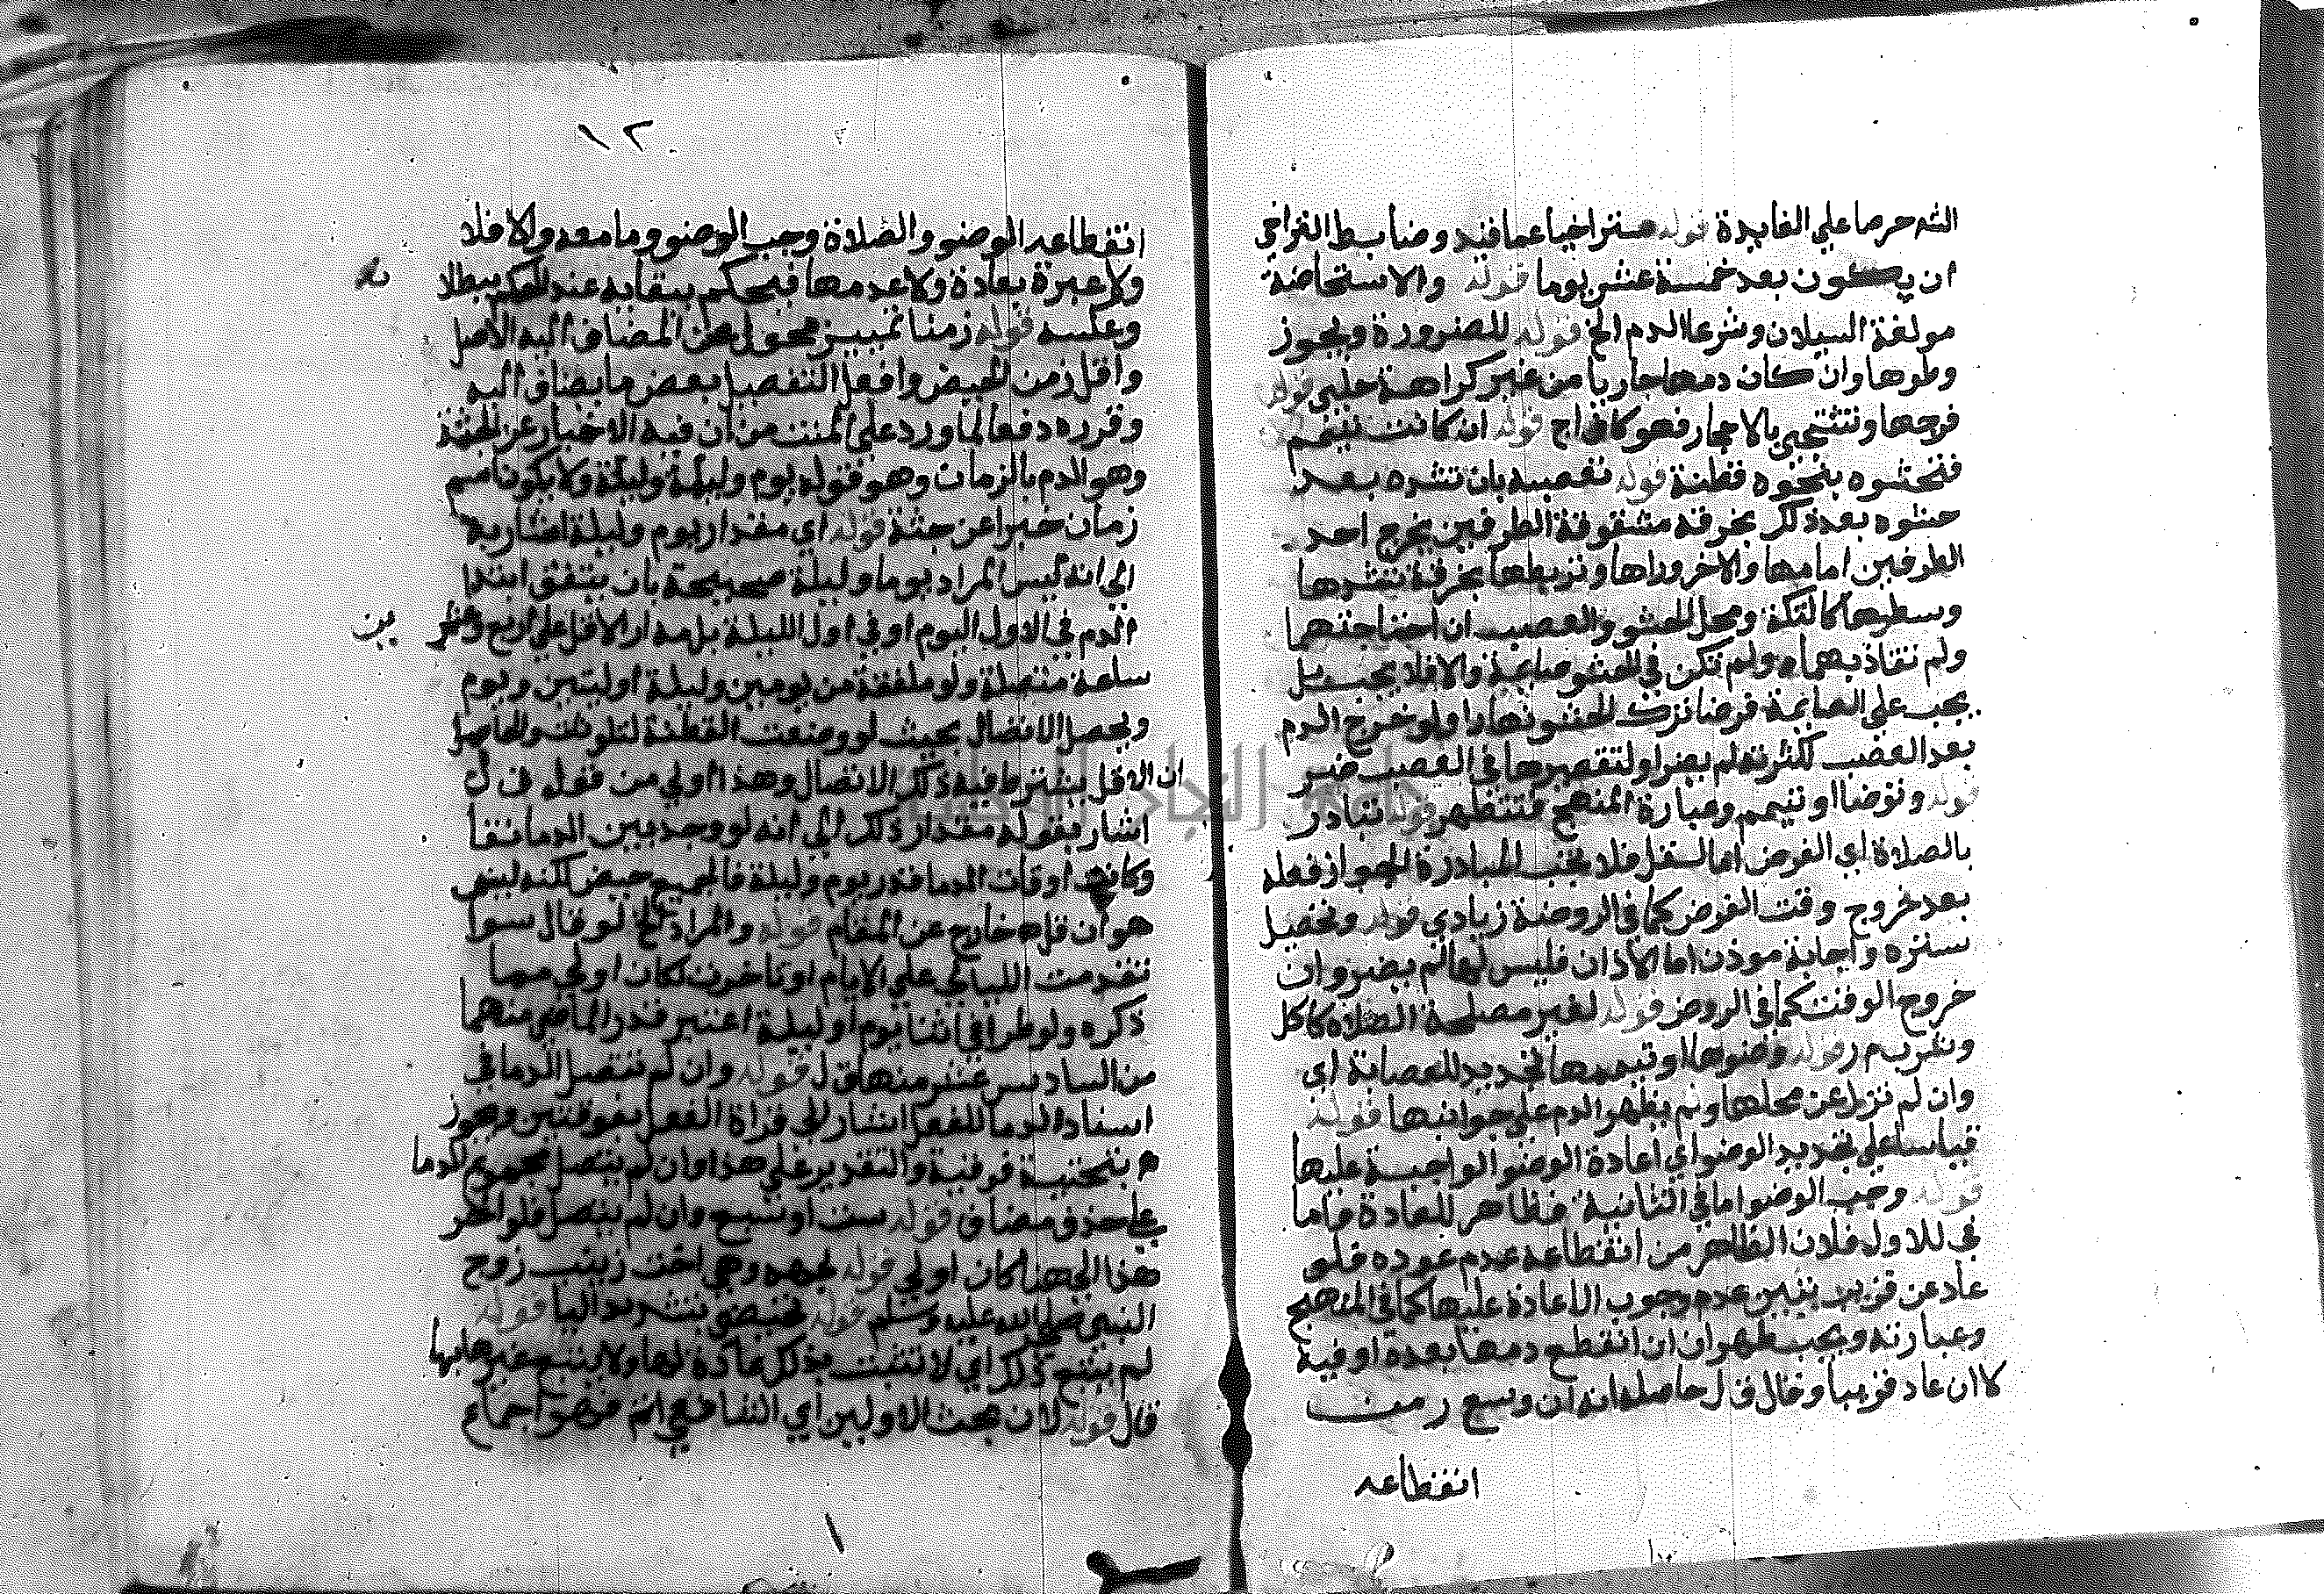 الله حرصا علي الفايدة قوله متراخيا عما قبله وضابط التراخي
ان يكون بعد خمسة عشر يوما قوله والاستحاضة
هو لغة السيلان وشرعا الدم الخ قوله للضرورة ويجوز
وطوها وان كان دمها جاريا من غير كراهة حلبي قوله
فرجها وتستنجي بالاحجار قوله ان كانت تتيمم
فتحشوه بنحوه قطنة قوله تعصبه بان تشده بعد
حشوه بعد ذلك بخرقة مشقوقة الطرفين يخرج احد
الطرفين امامها والاخر وراها وتربطها بخرقة تشدها
وسطها كالتكة ومحل الحشو والعصب ان احتاجتهما
ولم تتاذ بهما ولم تكن في الحشو صايمة والا فلا يجب بل
يجب علي الصايمة فرضا ترك الحشو نهارا ولو خرج الدم
بعد العصب لكثرته لم يضر او لتقصيرها في العصب ضر
قوله وتوضا او تتيمم وعبارة المنهج فتتطهر قوله تبادر
بالصلاة اي الفرض اما النفل فلا يجب المبادرة لجواز فعله
بعد خروج وقت الفرض كما في الروضة زيادي قوله وتحصيل
سترة واجابة موذن اما الاذان فليس لها لم يضر وان
خروج الوقت كما في الروض قوله لغير مصلحة الصلاة كاكل
قوله وضوها او تيممها تجديد العصابة اي
وان لم تزل عن محلها ولم يظهر الدم علي جوانبها قوله
قياسا علي تجديد الوضو اي اعادة الوضو الواجبة عليها
قوله وجب الوضو اما في الثانية فظاهر للعادة واما
في الاول فلان الظاهر من انقطاعه عدم عوده فلو
عاد عن قرب يتبين عدم وجوب الاعادة عليها كما في المنهج
وعبارته ويجب طهر ان انقطع دمها بعده او فيه
لا ان عاد قريبا وقال ق ل حاصله انه ان وسع زمن
انقطاعه
١٢
انقطاعه الوضو والصلاة وجب الوضو وما معه والا فلا
ولا عبرة بعادة ولا عدمها فيحكم ببقايه عند الحكم ببطلا
نه
وعكسه قوله زمنا تمييز محول عن المضاف اليه الاصل
واقل زمن الحيض وافعل التفضيل بعض ما يضاف اليه
وقرره دفعا لما ورد علي المتن من ان فيه الاخبار عن الجثة
وهو الدم بالزمان وهو قوله يوم وليلة ولا يكون اسم
زمان خبرا عن جثة قوله اي مقدار يوم وليلة اشار به
الي انه ليس المراد يوما وليلة صحيحة بان يتفق ابتدا
الدم في الاول اليوم او في اول الليلة بل مدار الاقل علي اربع وعشر
ين
ساعة متصلة ولو ملفقة من يومين وليلة او ليلتين ويوم
ويحصل الاتصال بحيث لو وضعت القطنة لتلوثت والحاصل
ان الاقل يشترط فيه ذلك الاتصال وهذا اولي من قول ق ل
اشار بقوله مقدار ذلك الي انه لو وجد بين الدما نقا
وكانت اوقات الدما قدر يوم وليلة فالجميع حيض لكنه ليس
هو ان قله خارج عن المقام قوله والمراد الخ لو قال سوا
تقدمت الليالي علي الايام او تاخرت لكان اولي مما
ذكره ولو طرا في اثنا يوم او ليلة اعتبر قدر الماضي منهما
من السادس عشر منها ق ل قوله وان لم تتصل الدما في
اسناد الدما للفعل اشار الي قراة الفعل بفوقيتين وهو ز
م بتحتية فوقية والتقدير علي هذا وان لم يتصل مجموع الدما
علي حذف مضاف قوله ست او سبع وان لم يتصل فلو اخر
هذا لكان اولي قوله لحمنه وهي اخت زينب زوج
النبي صلي الله عليه وسلم قوله تحيضي بتشديد اليا قوله
لم يتبع ذلك اي لا تثبت بذلك عادة لها ولا يتبع غيرها بها
قال قوله لان بحث الاولين اي الشافعي